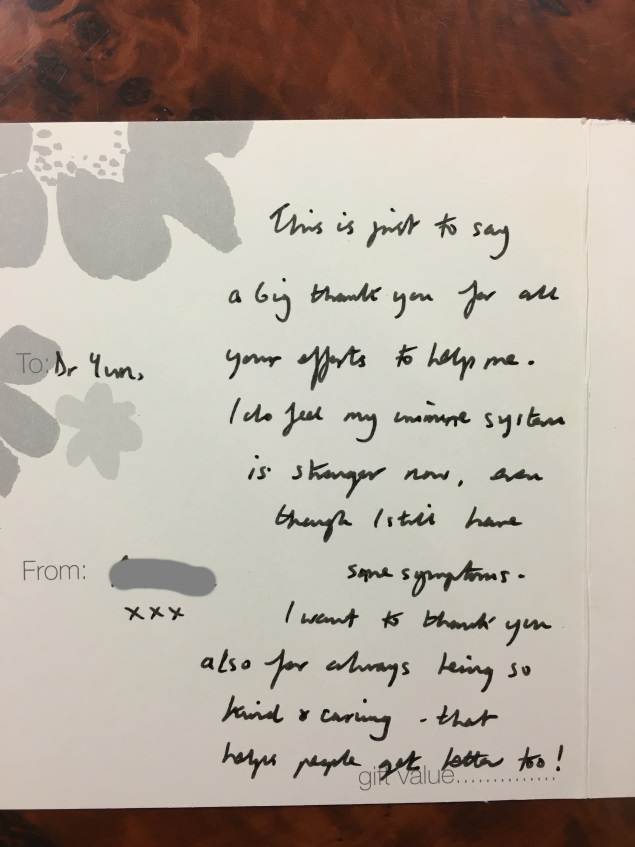 This is just to say
a big thank you for all
your efforts to help me.
To: Dr Yun,
I do feel my immune system
is stronger now, even
though I still have
some symptoms.
From:
xxx
I want to thank you
also for always being so
kind & caring - that
helps people get better too!
gift value..............